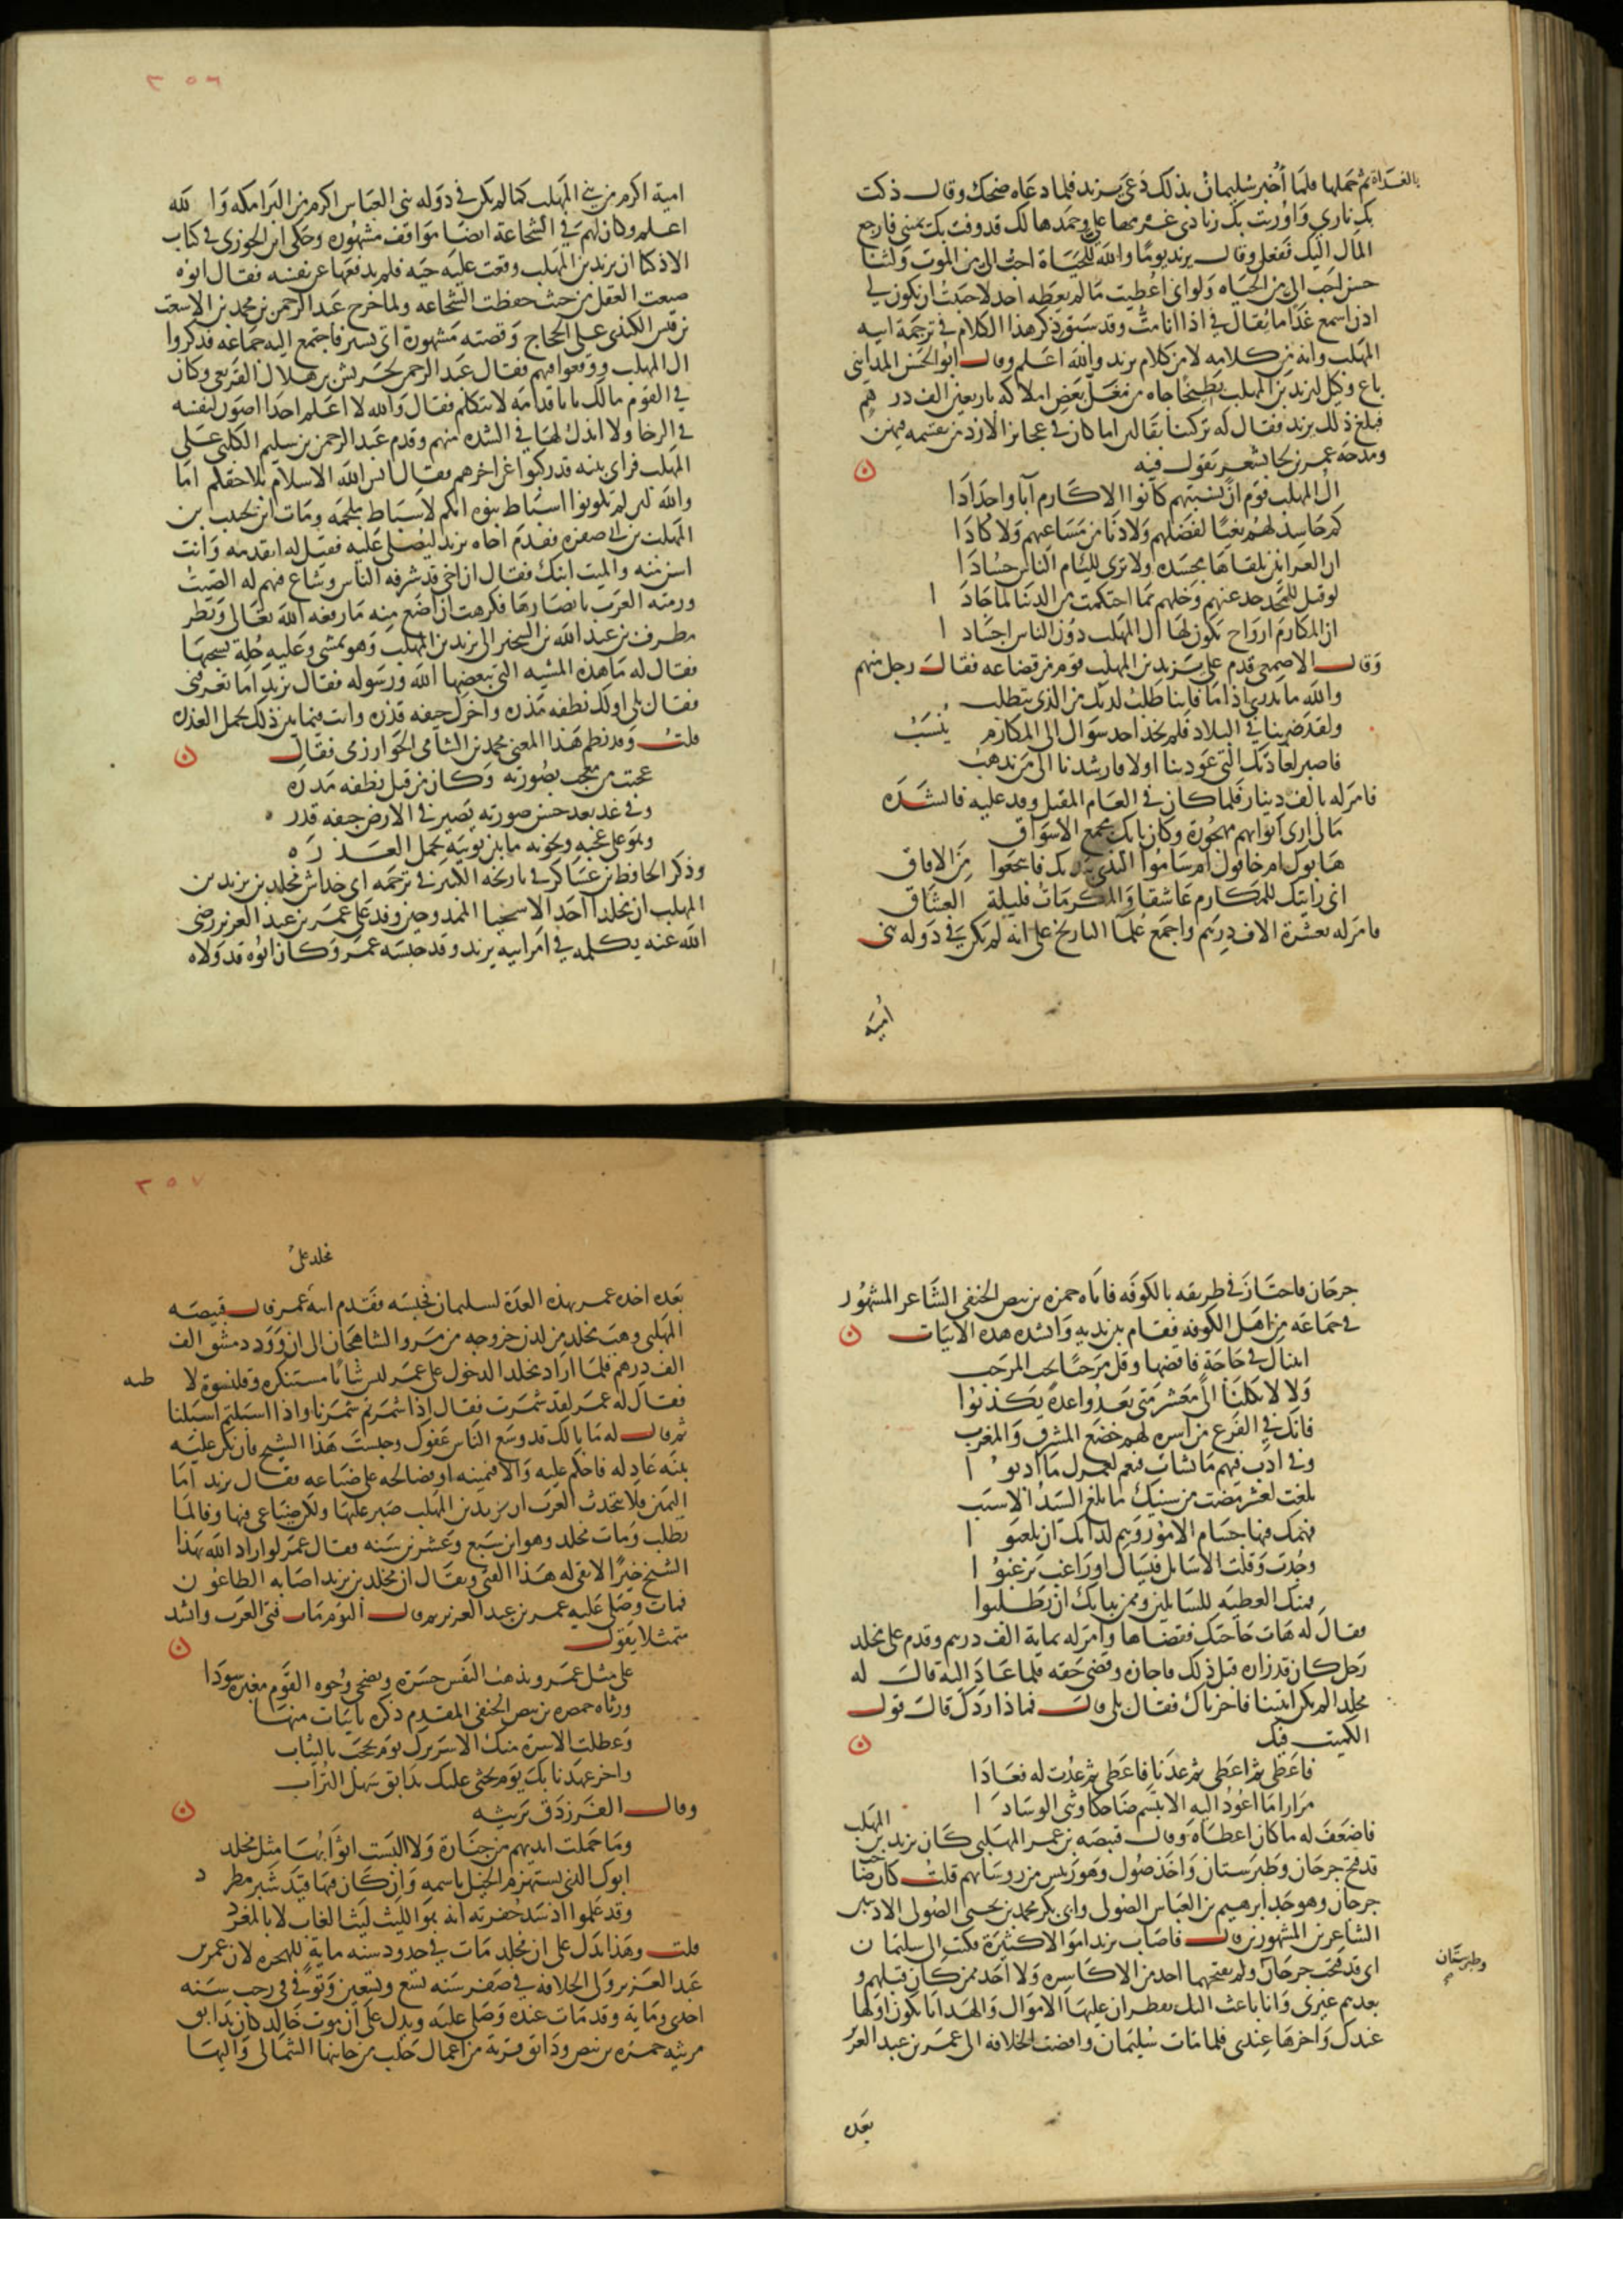 بالغداة ثم حملها فلما أخبر سليمان بذلك دعى يزيد فلما دعاه ضحك وقال ذكت
بك ناري واوريت بك زنادي غرمها علي وحمدها لك قد وفت بك يميني فارجع
المال اليك ففعل وقال يزيد يوما والله للحياة احب الي من الموت ولثنا
حسن احب الي من الحياه ولو اني اعطيت ما لم يعطه احد لاحببت ان يكون لي
اذن اسمع غدا ما يقال في اذا انا مت وقد سبق ذكر هذا الكلام في ترجمة ابيه
المهلب وانه من كلامه لا من كلام يزيد والله اعلم وقال ابو الحسن المدايني
باع وكيل ليزيد بن المهلب بطيخا جاه من مغل بعض املاكه باربعين الف درهم
فبلغ ذلك يزيد فقال له تركتنا بقالين اما كان في عجايز الازد من تقسمه فيهن
ومدحه عمر بن لجا بشعر يقول فيه
ال المهلب قوم ان نسبتهم كانوا الاكارم آبا واجدادا
كم حاسد لهم بغيا لفضلهم ولا دنا من مساعيهم ولا كادا
ان العرانين تلقاها محسده ولا ترى للئام الناس حسادا
لو قيل للمجد حد عنهم وخلهم بما احتكمت من الدنيا لما جادا
ان المكارم ارواح يكون لها ال المهلب دون الناس اجسادا
وقال الاصمعي قدم على يزيد بن المهلب قوم من قضاعه فقال رجل منهم
والله ما ندري اذا ما فاتنا طلب لديك من الذي يتطلب
ولقد ضربنا في البلاد فلم نجد احد سواك الى المكارم ينسب
فاصبر لعادتك التي عودتنا اولا فارشدنا الى من نذهب
فامر له بالف دينار فلما كان في العام المقبل وفد عليه فانشده
مالي ارى ابوابهم مهجورة وكان بابك مجمع الاسواق
هابوك ام خافوك ام شاموا الندى بيديك فاجتمعوا من الافاق
اني رايتك للمكارم عاشقا والمكرمات قليلة العشاق
فامر له بعشرة الاف درهم واجمع علما التاريخ على انه لم يكن في دوله بني
أميه
٣٥٦
امية اكرم من بني المهلب كما لم يكن في دوله بني العباس اكرم من البرامكه والله
اعلم وكان لهم في الشجاعة ايضا مواقف مشهوره وحكى ابن الجوزي في كتاب
الاذكيا ان يزيد بن المهلب وقعت عليه حيه فلم يدفعها عن نفسه فقال ابوه
ضيعت العقل من حيث حفظت الشجاعه ولما خرج عبد الرحمن بن محمد بن الاشعث
بن قيس الكندي على الحجاج وقصته مشهورة اتى تستر فاجتمع اليه جماعه فذكروا
ال المهلب ووقعوا فيهم فقال عبد الرحمن لحريش بن هلال القريعي وكان
في القوم مالك يا با قدامه لا تتكلم فقال والله لا اعلم احدا اصون لنفسه
في الرخا ولا ابذل لها في الشده منهم وقدم عبد الرحمن بن سليم الكلبي على
المهلب فراى بنيه قد ركبوا عن اخرهم فقال انس الله الاسلام بتلاحقكم اما
والله لئن لم تكونوا اسباط نبوه انكم لاسباط ملحمه ومات ابن لحبيب بن
المهلب بن ابي صفره فقدم اخاه يزيد ليصلي عليه فقيل له اتقدمه وانت
اسن منه والميت ابنك فقال ان اخي قد شرفه الناس وشاع فيهم له الصيت
ورمته العرب بابصارها فكرهت ان اضع منه ما رفعه الله تعالى ونظر
مطرف بن عبد الله بن الشخير الى يزيد بن المهلب وهو يمشي وعليه حلة يسحبها
فقال له ما هذه المشيه التي يبغضها الله ورسوله فقال يزيد اما تعرفني
فقال بلى اولك نطفه مذره واخرك جيفه قذره وانت فيما بين ذلك تحمل العذره
قلت وقد نظم هذا المعنى محمد بن الشامي الخوارزمي فقال
عجبت من معجب بصورته وكان من قبل نطفه مذره
وفي غد بعد حسن صورته يصير في الارض جيفه قذره
وهو على عجبه ونخوته ما بين ثوبيه يحمل العذره
وذكر الحافظ بن عساكر في تاريخه الكبير في ترجمه ابي خداش مخلد بن يزيد بن
المهلب ان مخلدا احد الاسخيا الممدوحين وفد على عمر بن عبد العزيز رضي
الله عنه يكلمه في امر ابيه يزيد وقد حبسه عمر وكان ابوه قد ولاه
جرجان فاجتاز في طريقه بالكوفه فاتاه حمزه بن بيض الحنفي الشاعر المشهور
في جماعه من اهل الكوفه فقام بين يديه وانشده هذه الابيات
اتيناك في حاجة فاقضها وقل مرحبا يجب المرحب
ولا لا تكلنا الى معشر متى يعدوا عدة يكذبوا
فانك في الفرع من اسره لهم خضع المشرق والمغرب
وفي ادب فيهم ما نشات فنعم لعمرك ما ادبوا
بلغت لعشر مضت من سنيك ما يبلغ السيد الاشيب
فهمك فيها جسام الامور وهم لداتك ان يلعبوا
وجدت وقلت الا سايل فيسال او راغب يرغبوا
فمنك العطيه للسايلين وممن ببابك ان يطلبوا
فقال له هات حاجتك فقضاها وامر له بماية الف درهم وقدم على مخلد
رجل كان قد زاره قبل ذلك فاجازه وقضى حقه فلما عاد اليه قال له
مخلد الم تكن اتيتنا فاجزناك فقال بلى قال فماذا ردك قال قول
الكميت فيك
فاعطى ثم اعطى ثم عدنا فاعطى ثم عدت له فعادا
مرارا ما اعود اليه الا تبسم ضاحكا وثنى الوسادا
فاضعف له ما كان اعطاه وقال قبيصه بن عمر المهلبي كان يزيد بن المهلب
قد فتح جرجان وطبرستان واخذ صول وهو رئيس من روسائهم قلت كان صاحب
جرجان وهو جد ابرهيم بن العباس الصولي وابي بكر محمد بن يحيى الصولي الاديبين
الشاعرين المشهورين قال فاصاب يزيد اموالا كثيرة فكتب الى سليمان
اني قد فتحت جرجان ولم يفتحهما احد من الاكاسره ولا احد ممن كان قبلهم و
وطبرستان
بعدهم غيري وانا باعث اليك بقطران عليها الاموال والهدايا يكون اولها
عندك واخرها عندي فلما مات سليمان وافضت الخلافه الى عمر بن عبد العزيز
بعده
٣٥٧
مخلد على
بعده اخذه عمر بهذه العدة لسليمان فحبسه فقدم ابنه عمر قال قبيصه
المهلبي وهب مخلد من لدن خروجه من مرو الشاهجان الى ان ورد دمشق الف
الف درهم فلما اراد مخلد الدخول على عمر لبس ثيابا مستنكره وقلنسوة لا
طيه
فقال له عمر لقد شمرت فقال اذا شمرتم شمرنا واذا اسبلتم اسبلنا
ثم قال له ما بالك قد وسع الناس عفوك وحبست هذا الشيخ فان تكن عليه
بينه عادله فاحكم عليه والا فيمينه او فصالحه على ضياعه فقال يزيد اما
اليمين فلا تتحدث العرب ان يزيد بن المهلب صبر عليها ولكن ضياعي فيها وفا لما
يطلب ومات مخلد وهو ابن سبع وعشرين سنه فقال عمر لو اراد الله بهذا
الشيخ خيرا لابقى له هذا الفتى ويقال ان مخلد بن يزيد اصابه الطاعون
فمات وصلى عليه عمر بن عبد العزيز ثم قال اليوم مات فتى العرب وانشد
متمثلا يقول
على مثل عمرو يذهب النفس حسرة وتضحي وجوه القوم مغبره سودا
ورثاه حمزه بن بيض الحنفي المقدم ذكره بابيات منها
وعطلت الاسرة منك الا سريرك يوم تحجب بالثياب
واخر عهدنا بك يوم يحثى عليك بدابق سهل التراب
وقال الفرزدق يرثيه
وما حملت ايديهم من جنازة ولا البست اثوابها مثل مخلد
ابوك الذي تستهزم الخيل باسمه وان كان فيها قيد شهر مطرد
وقد علموا اذ شد حقويه انه هو الليث ليث الغاب لا بالمغرد
قلت وهذا يدل على ان مخلد مات في حدود سنه ماية للهجره لان عمر بن
عبد العزيز ولي الخلافه في صفر سنه تسع وتسعين وتوفي في رجب سنه
احدى وماية وقد مات عنده وصلى عليه ويدل على ان موت خالد كان بدابق
مرثيه حمزه بن بيض ودابق قرية من اعمال حلب من جانبها الشمالي واليها